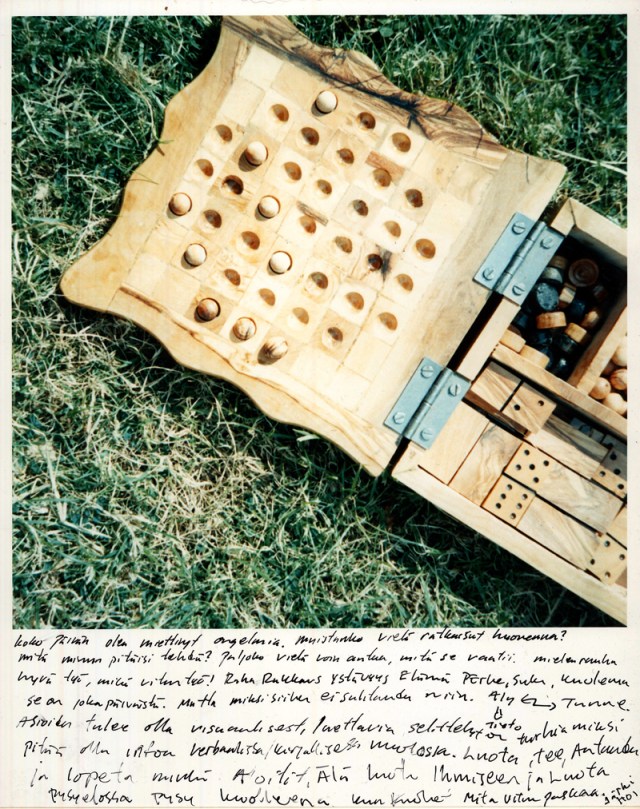 koko päivän olen miettinyt ongelmia. muistanko vielä ratkaisut huomenna?
mitä minun pitäisi tehdä? Paljoko vielä voin antaa, mitä se vaatii. mielenrauha
hyvä työ, mikä vitun työ! Raha Rakkaus ystävyys Elämä Perhe, suku, kuolema
se on jokapäiväistä. Mutta miksi siihen ei suhtauduta niin. Äly Tunne
Asioiden tulee olla visuaalisesti luettavia selittelyt on turhia miksi
Tieto
pitää olla infoa verbaalissa/kirjallisessa muodossa. Luota, tee, Antaudu
ja lopeta Aloitit, Älä luota Ihmiseen ja Luota
pysy kuolleena kun kuolet Mitä vitun paskaa